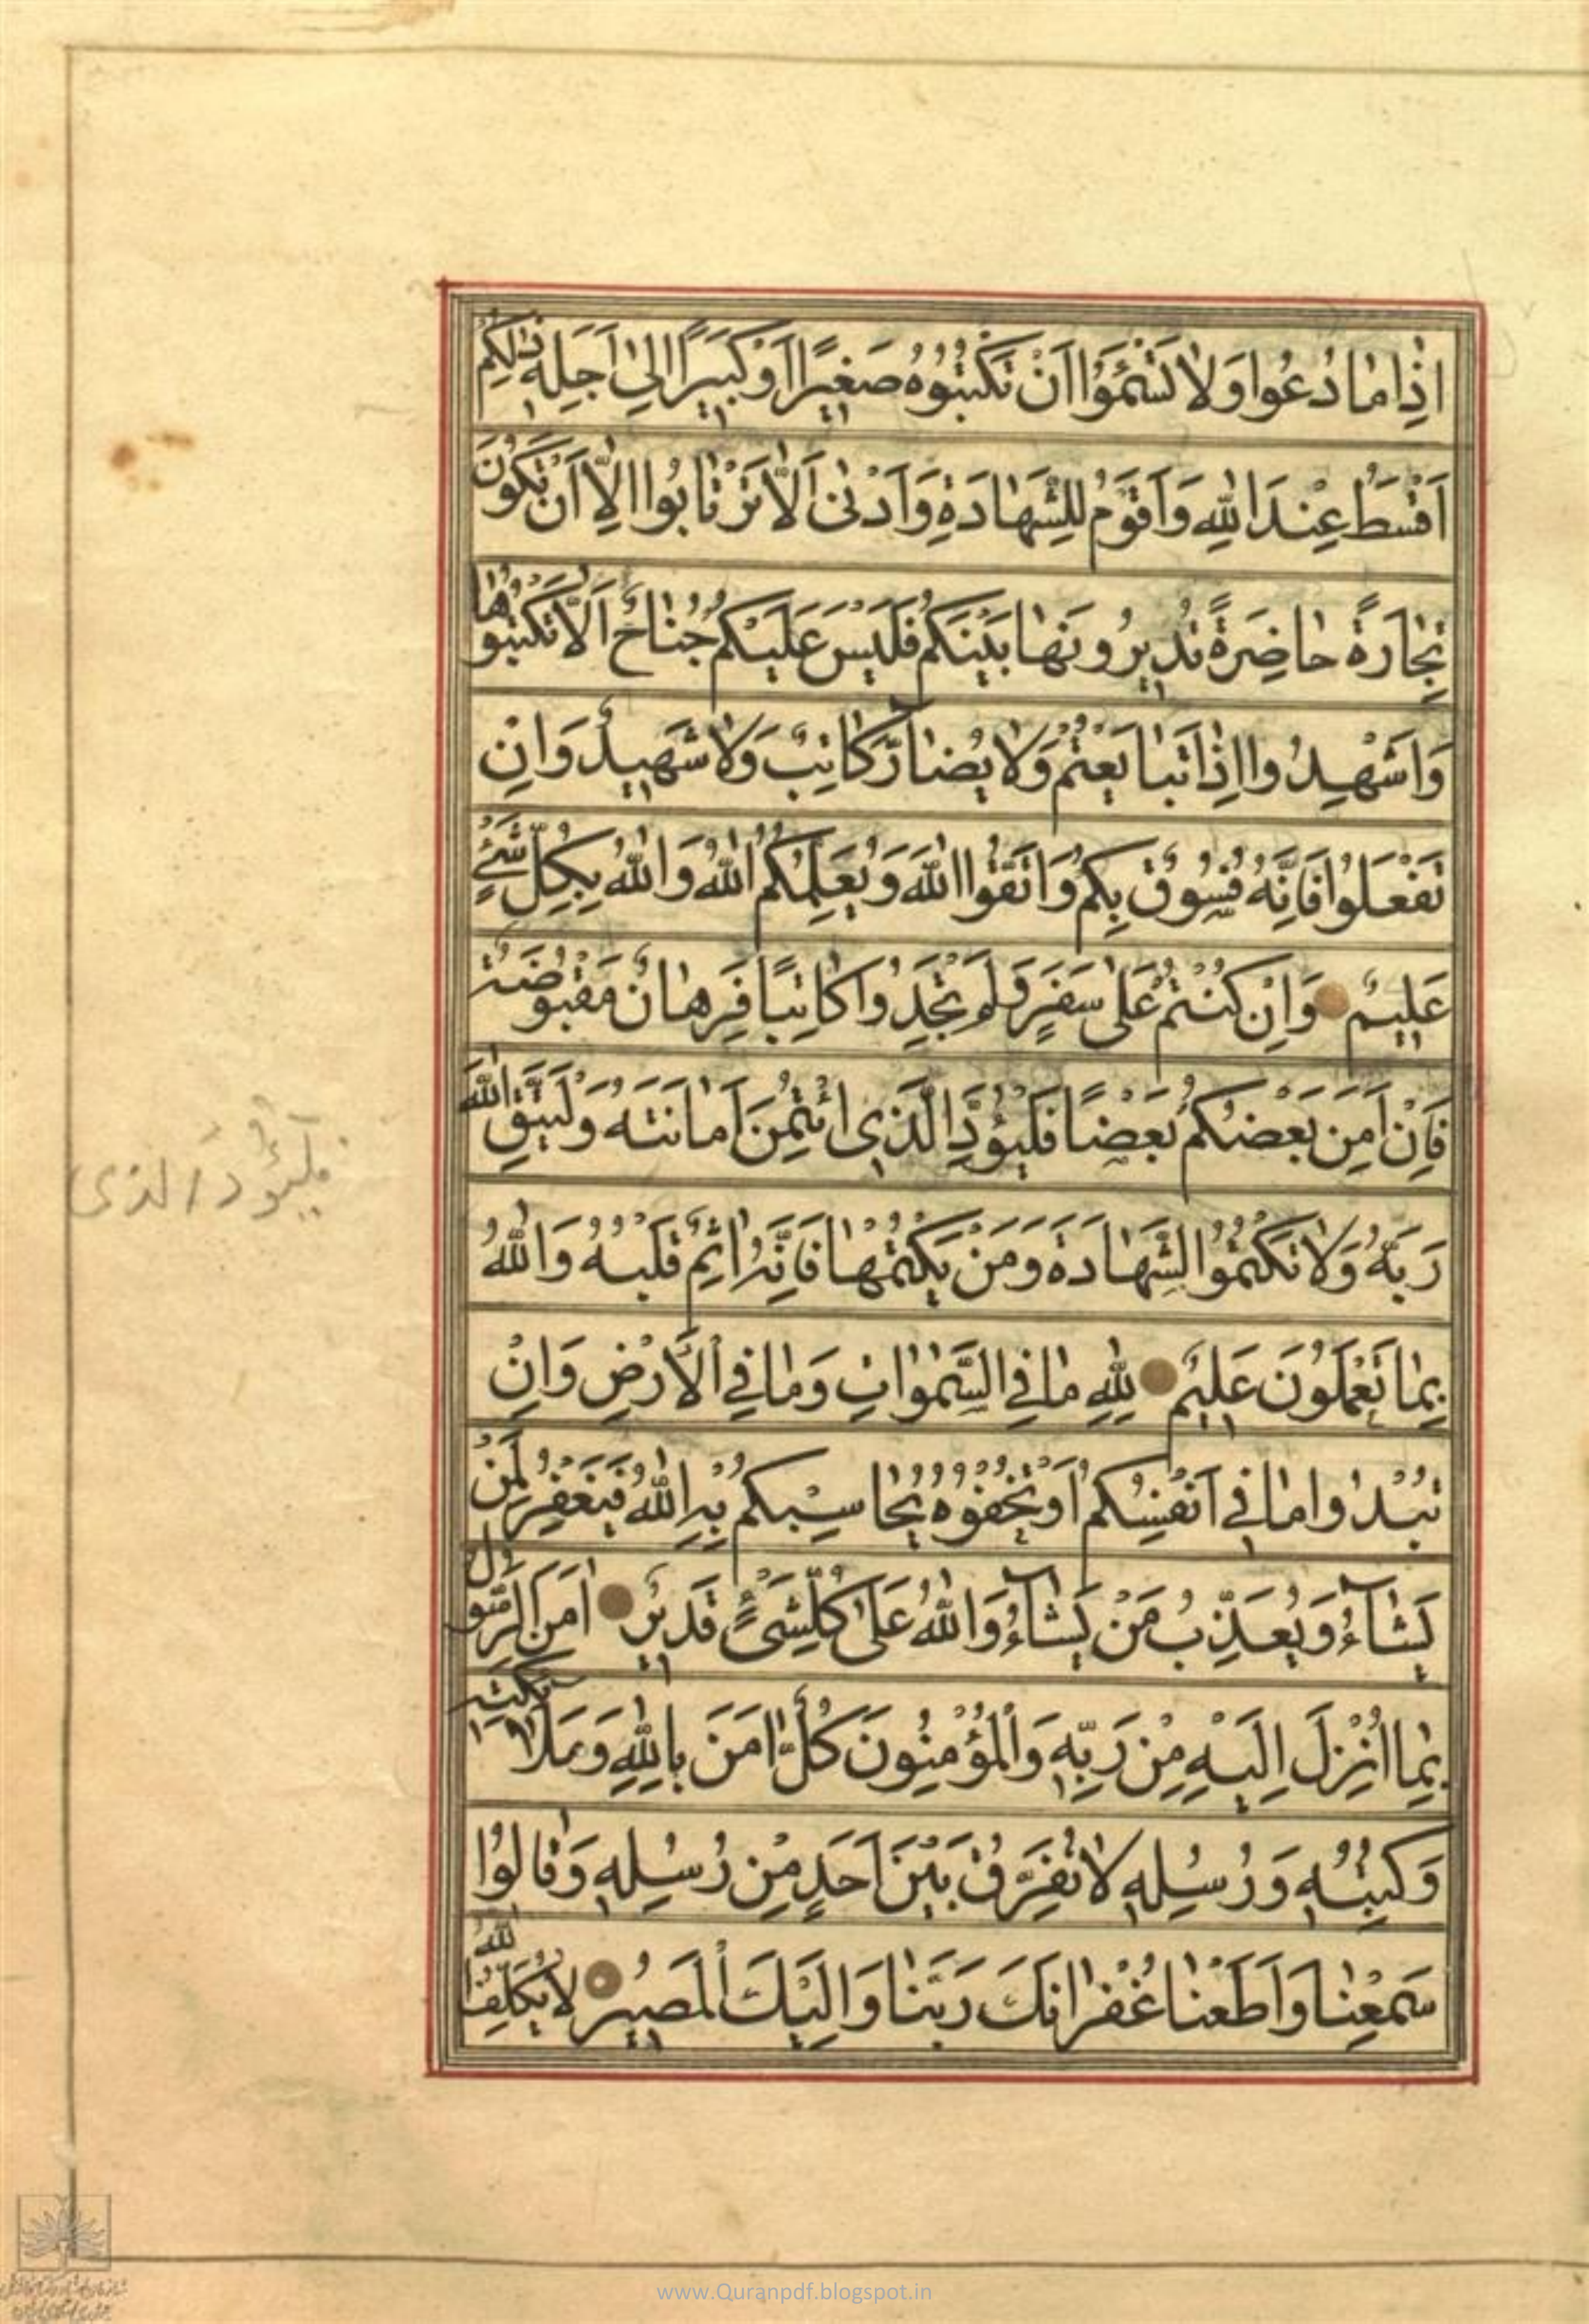 اِذَا مَا دُعُوا وَلَا تَسْئَمُوا اَنْ تَكْتُبُوهُ صَغِيرًا اَوْ كَبِيرًا اِلٰى اَجَلِهِ ذٰلِكُمْ
اَقْسَطُ عِنْدَ اللّٰهِ وَاَقْوَمُ لِلشَّهَادَةِ وَاَدْنٰى اَلَّا تَرْتَابُوا اِلَّا اَنْ تَكُونَ
تِجَارَةً حَاضِرَةً تُدِيرُونَهَا بَيْنَكُمْ فَلَيْسَ عَلَيْكُمْ جُنَاحٌ اَلَّا تَكْتُبُوهَا
وَاَشْهِدُوا اِذَا تَبَايَعْتُمْ وَلَا يُضَارَّ كَاتِبٌ وَلَا شَهِيدٌ وَاِنْ
تَفْعَلُوا فَاِنَّهُ فُسُوقٌ بِكُمْ وَاتَّقُوا اللّٰهَ وَيُعَلِّمُكُمُ اللّٰهُ وَاللّٰهُ بِكُلِّ شَيْءٍ
عَلِيمٌ وَاِنْ كُنْتُمْ عَلٰى سَفَرٍ وَلَمْ تَجِدُوا كَاتِبًا فَرِهَانٌ مَقْبُوضَةٌ
فَاِنْ اَمِنَ بَعْضُكُمْ بَعْضًا فَلْيُؤَدِّ الَّذِي ائْتُمِنَ اَمَانَتَهُ وَلْيَتَّقِ اللّٰهَ
فليؤد الذى
رَبَّهُ وَلَا تَكْتُمُوا الشَّهَادَةَ وَمَنْ يَكْتُمْهَا فَاِنَّهُ اٰثِمٌ قَلْبُهُ وَاللّٰهُ
بِمَا تَعْمَلُونَ عَلِيمٌ لِلّٰهِ مَا فِي السَّمٰوَاتِ وَمَا فِي الْاَرْضِ وَاِنْ
تُبْدُوا مَا فِي اَنْفُسِكُمْ اَوْ تُخْفُوهُ يُحَاسِبْكُمْ بِهِ اللّٰهُ فَيَغْفِرُ لِمَنْ
يَشَآءُ وَيُعَذِّبُ مَنْ يَشَآءُ وَاللّٰهُ عَلٰى كُلِّ شَيْءٍ قَدِيرٌ اٰمَنَ الرَّسُولُ
بِمَا اُنْزِلَ اِلَيْهِ مِنْ رَبِّهِ وَالْمُؤْمِنُونَ كُلٌّ اٰمَنَ بِاللّٰهِ وَمَلَائِكَتِهِ
وَكُتُبِهِ وَرُسُلِهِ لَا نُفَرِّقُ بَيْنَ اَحَدٍ مِنْ رُسُلِهِ وَقَالُوا
سَمِعْنَا وَاَطَعْنَا غُفْرَانَكَ رَبَّنَا وَاِلَيْكَ الْمَصِيرُ لَا يُكَلِّفُ اللّٰهُ
www.Quranpdf.blogspot.in